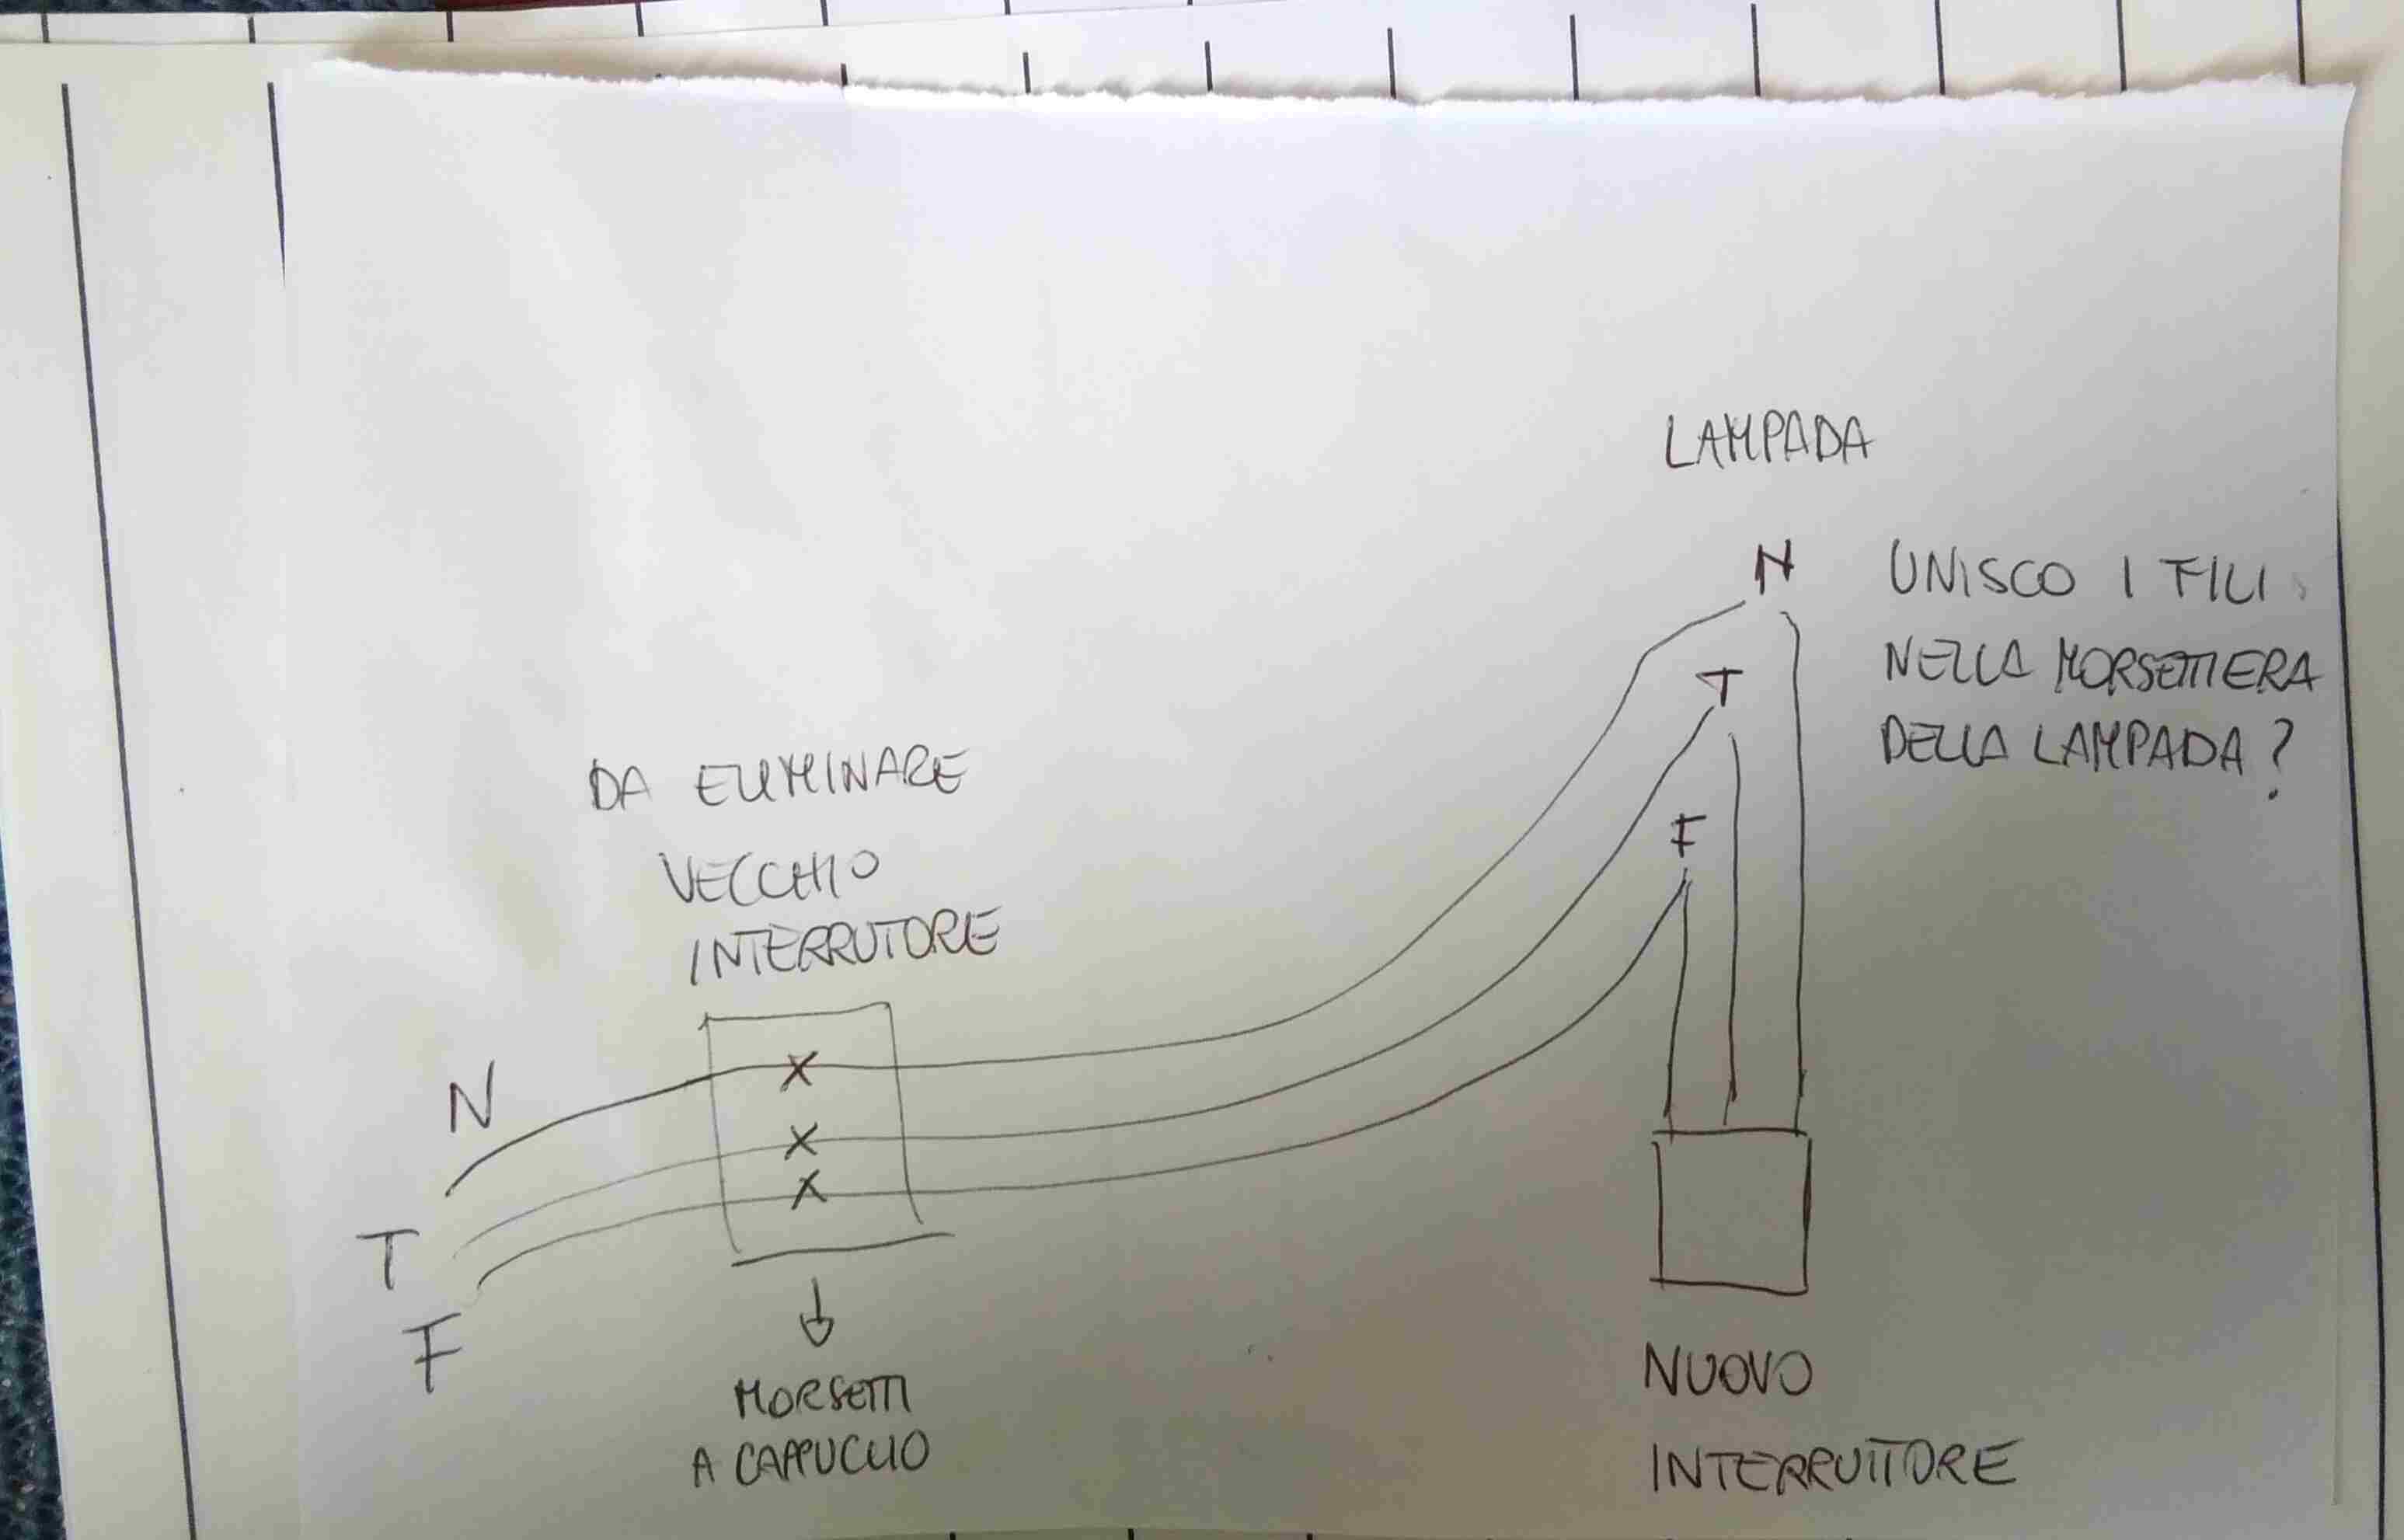 LAMPADA
N
UNISCO I FILI
T
NELLA MORSETTIERA
F
DELLA LAMPADA?
DA ELIMINARE
VECCHIO
INTERRUTORE
N
T
F
MORSETTI
A CAPPUCCIO
NUOVO
INTERRUTTORE